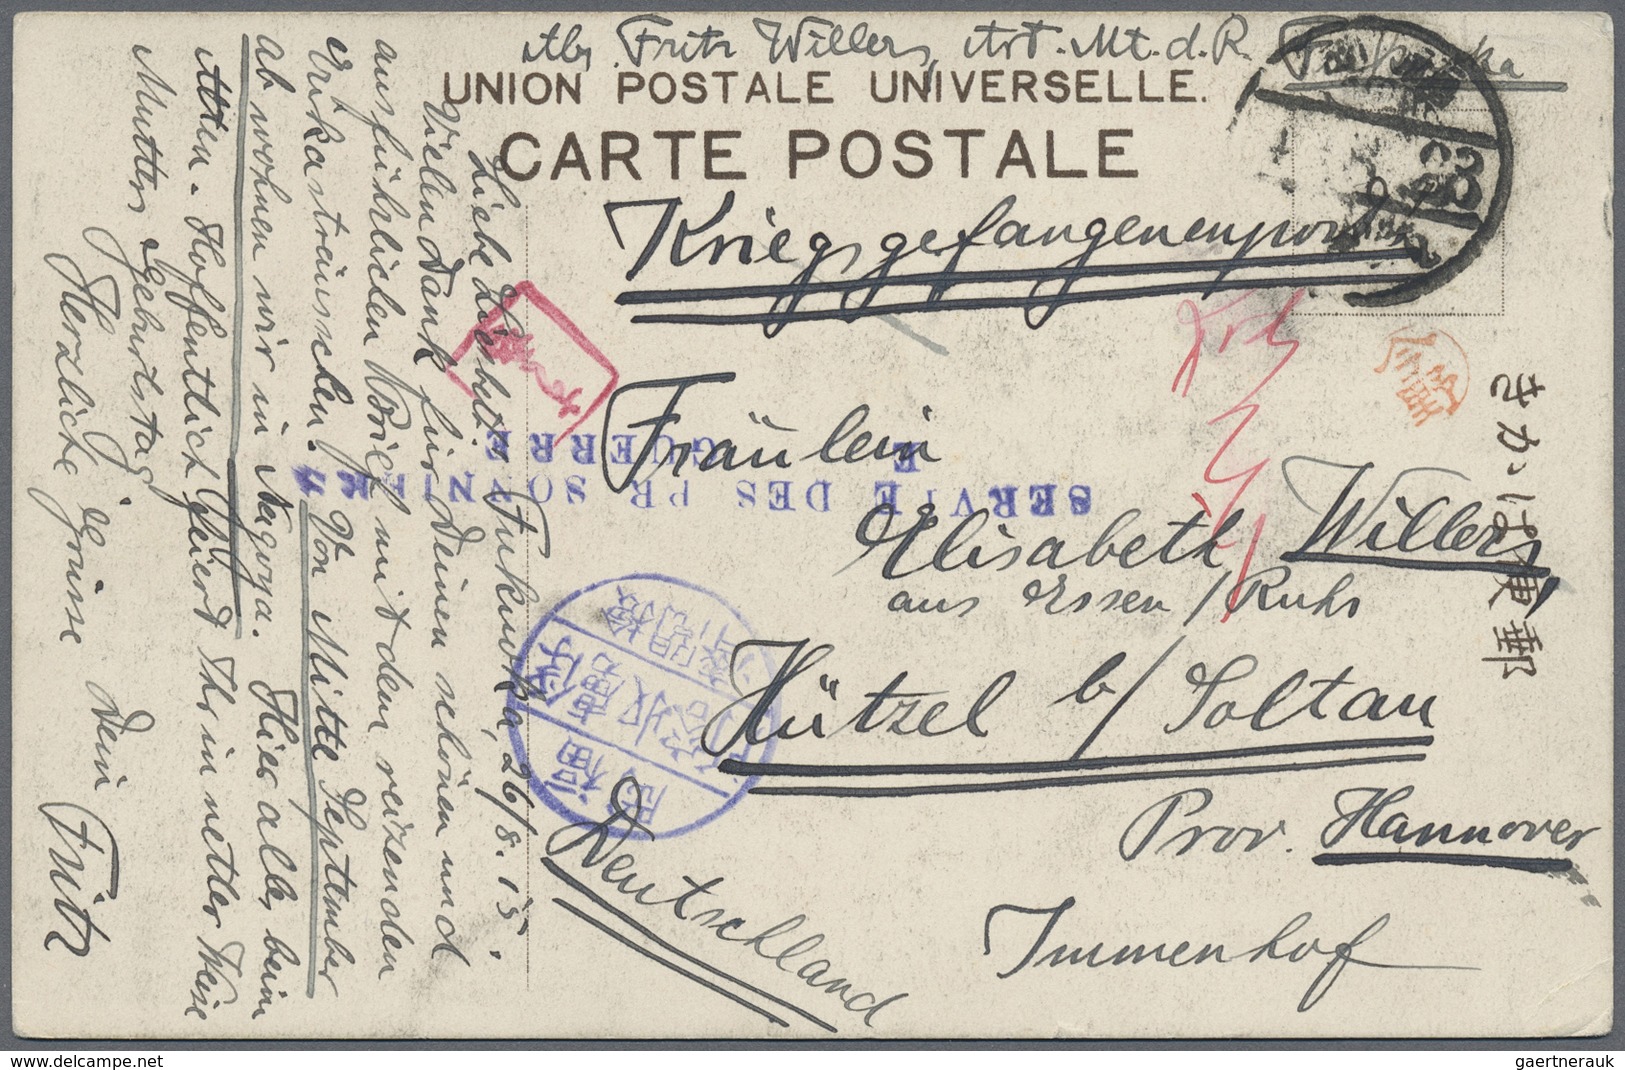 Abs. Fritz Willers, Art. Mt. d. R. Fukuoka
UNION POSTALE UNIVERSELLE.
CARTE POSTALE
Kriegsgefangenenpost
Fräulein
Elisabeth Willers,
aus Essen/Ruhr
Hützel b/Soltau
Prov. Hannover
Immenhof
Deutschland
きかは便郵
SERVIE DES PR SONNIERS
GUERRE
Liebe Liesbett. Fukuoka, 26/8.15.
Vielen Dank für Deinen schönen und
ausführlichen Brief mit dem reizenden
Erikasträusschen. Von Mitte September
ab wohnen wir in Nagoya. Hier alles beim
Alten. Hoffentlich feiert Ihr in netter Weise
Mutters Geburtstag.
Herzliche Grüsse Dein Fritz
gaertnerauk
www.delcampe.net